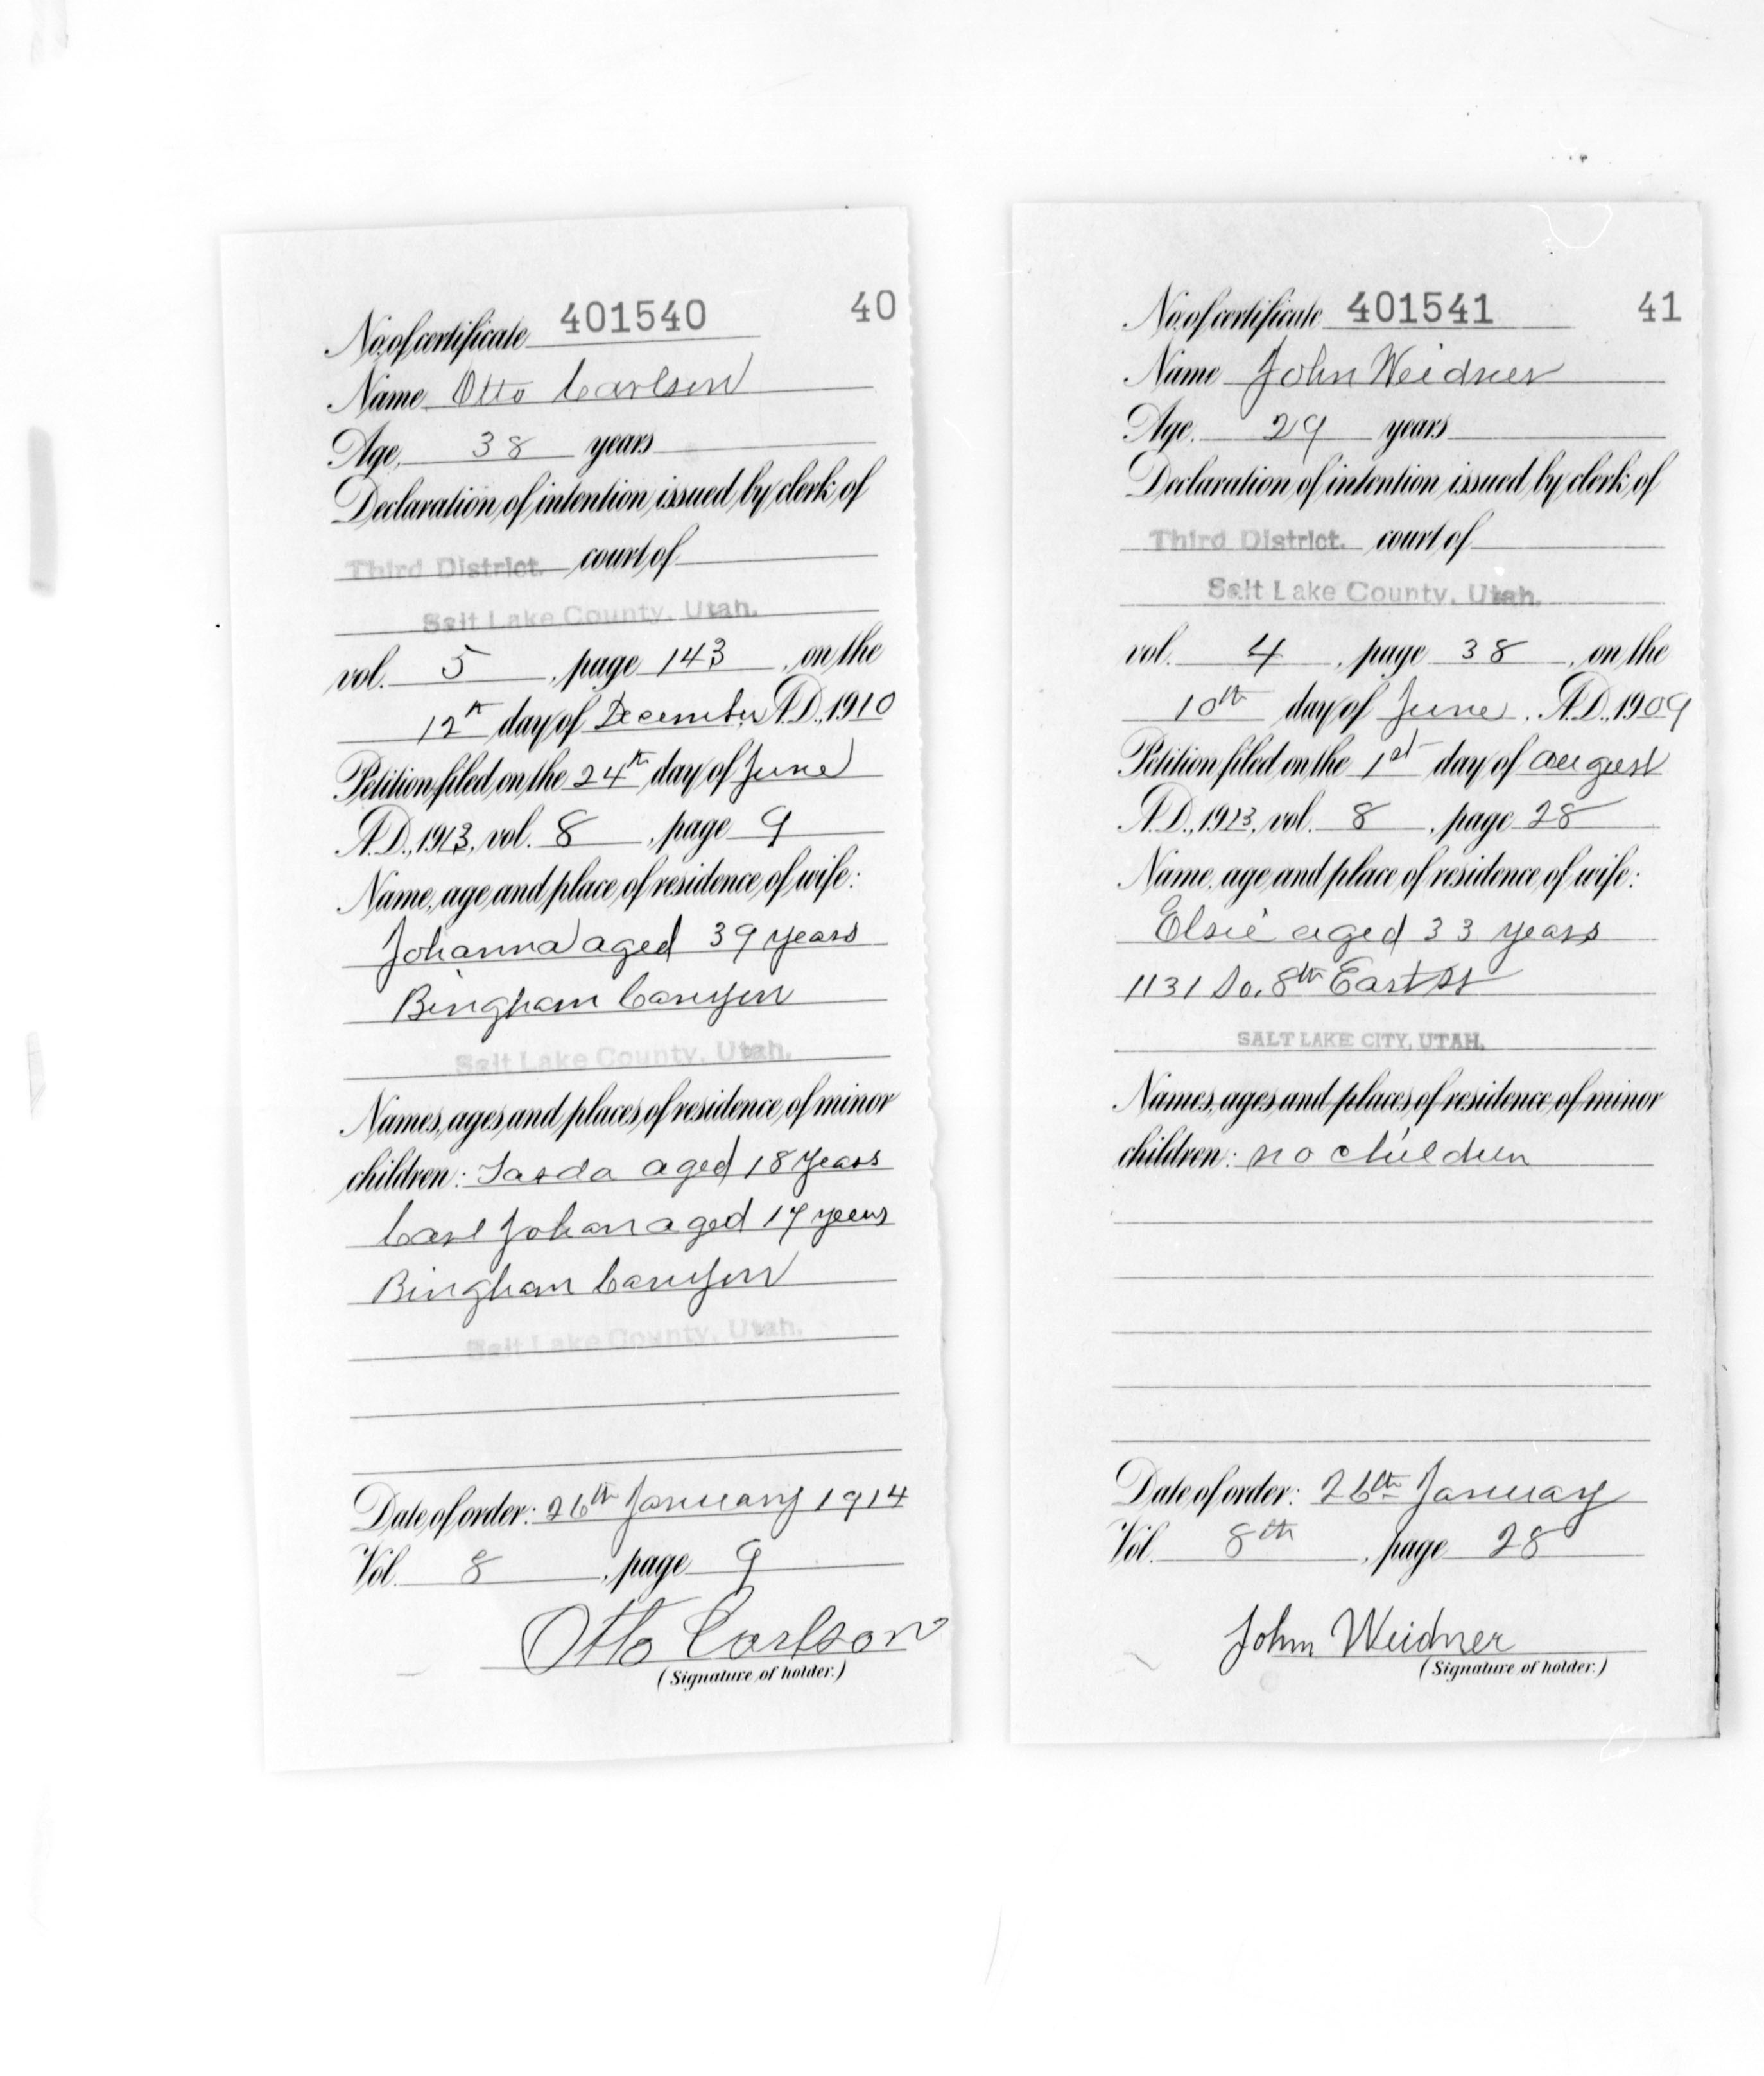 No. of certificate 401540 40
Name Otto Carlson
Age, 38 years
Declaration of intention issued by clerk of
Third District. court of
Salt Lake County, Utah.
vol. 5, page 143, on the
12th day of December A.D., 1910
Petition filed on the 24th day of June
A.D., 1913, vol. 8, page 9
Name, age and place of residence of wife:
Johanna aged 39 years
Bingham Canyon
Salt Lake County, Utah.
Names, ages and places of residence of minor
children: aged 18 years
Carl Johan aged 17 years
Bingham Canyon
Salt Lake County, Utah.
Date of order: 26th January 1914
Vol. 8, page 9
Otto Carlson
(Signature of holder.)
No. of certificate 401541 41
Name John Weidner
Age. 29 years
Declaration of intention issued by clerk of
Third District. court of
Salt Lake County, Utah.
vol. 4, page 38, on the
10th day of June, A.D., 1909
Petition filed on the 1st day of August
A.D., 1913, vol. 8, page 28
Name, age and place of residence of wife:
Elsie aged 33 years
1131 So. 8th East St
SALT LAKE CITY, UTAH.
Names, ages and places of residence of minor
children: no children
Date of order: 26th January
Vol. 8th, page 28
John Weidner
(Signature of holder.)